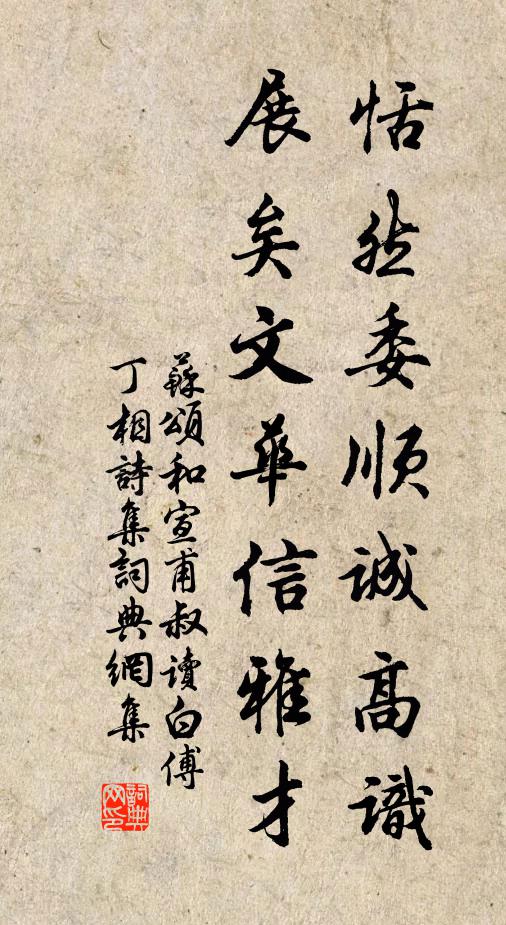 恬然委順誠高識
展矣文華信雅才
蘇頌和宣甫叔讀白傅
丁相詩集詞典網集
詞典網印